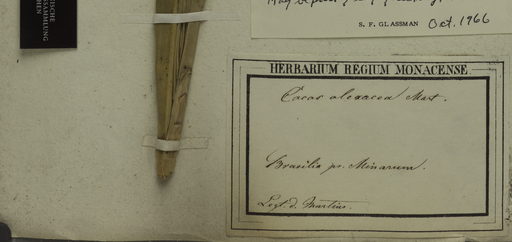 ISCHE
SSAMMLUNG
HEN
May
S. F. GLASSMAN Oct. 1966
HERBARIUM REGIUM MONACENSE
Cocos oleracea Mart.
Brasilia pr. Minarum.
Legt. d. Martius.